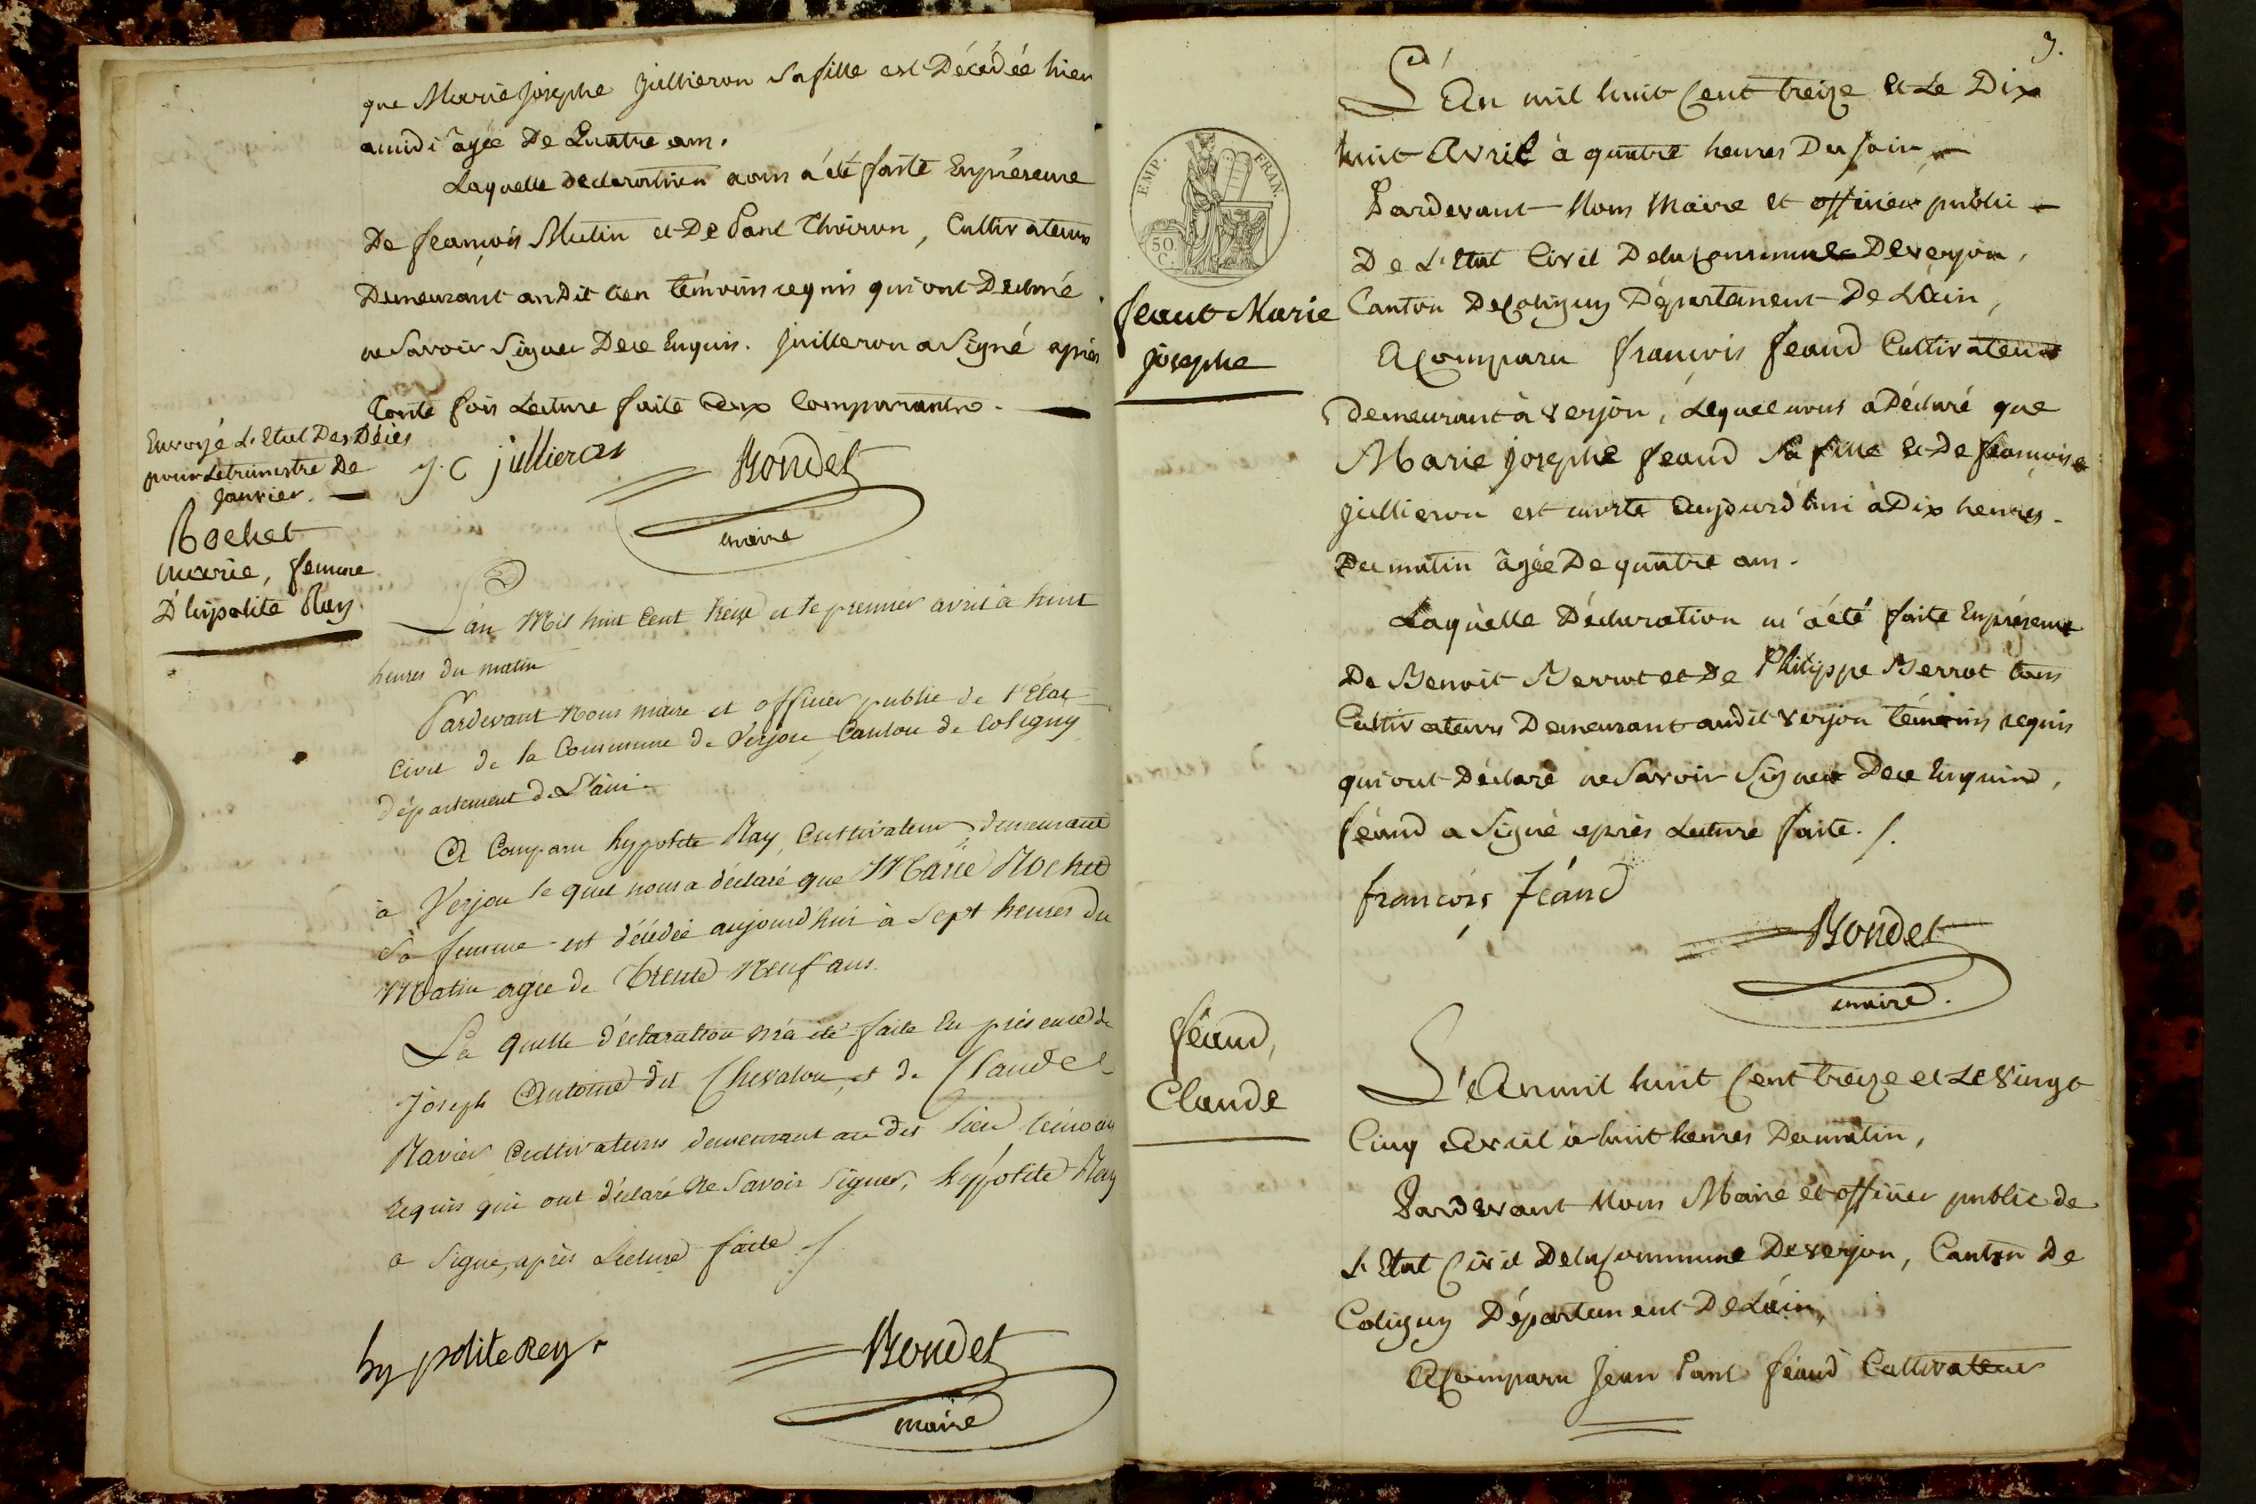 que Marie Josephe Jullieron sa fille est Décédée hier
a midi âgée De Quatre ans.
Laquelle declaration nous a été faite En présence
De François Mutin et De Paul Thoiron, Cultivateurs
Demeurant audit lieu témoins requis qui ont Declaré
ne Savoir Signer Dece Enquis. Juilleron a Signé après
toute fois Lecture faite aux Comparants.
Envoyé L'Etat Des Décès
pour Le trimestre De
Janvier.
J. C jullieron
Bondet
maire
Rochet
Marie, femme
D'hipolite Ray
L'an Mil huit Cent treize et le premier avril à huit
heures du matin
Pardevant Nous maire et officier public de l'État
Civil de la Commune de Verjon Canton de Coligny
département de L'ain.
A Comparu hyppolite Ray, Cultivateur, demeurant
à Verjon le quel nous a déclaré que Marie Rochet
Sa femme est décédée aujourd'hui à Sept heures du
Matin agée de trente Neuf ans.
La quelle déclaration m'a été faite En présence de
Joseph Antoine dit Chevalon, et de Claude
Ravier Cultivateurs demeurant au dit lieu témoins
requis qui ont déclaré Ne Savoir Signer, hyppolite Ray
a Signé, après Lecture faite
hypolite Rey
Bondet
maire
3.
EMP. FRAN.
50
C.
Feaut Marie
Josephe
L'An mil huit Cent treize et Le Dix
huit Avril à quatre heures Du soir
Pardevant Nous Maire et officier public
De L'Etat Civil De la Commune De verjon,
Canton De Coligny Département De L'Ain,
A Comparu françois feaud Cultivateur
Demeurant à verjon, Lequel nous a Déclaré que
Marie Josephe feaud Sa fille et De françoise
Jullieron est morte aujourd'hui à Dix heures
Du matin âgée De quatre ans.
Laquelle Déclaration m'a été faite En présence
De Benoit Berrot et De Philippe Berrot tous
Cultivateurs Demeurant audit verjon témoins requis
qui ont Déclaré ne Savoir Signer Dece Enquis,
féaud a Signé après Lecture faite.
françois féaud
Bondet
maire.
féaud,
Claude
L'An mil huit Cent treize et Le Vingt
Cinq Avril à huit heures Du matin,
Pardevant Nous Maire et officier public de
L'Etat Civil De la Commune De verjon, Canton De
Coligny Département De L'ain,
A Comparu Jean Paul féaud Cultivateur